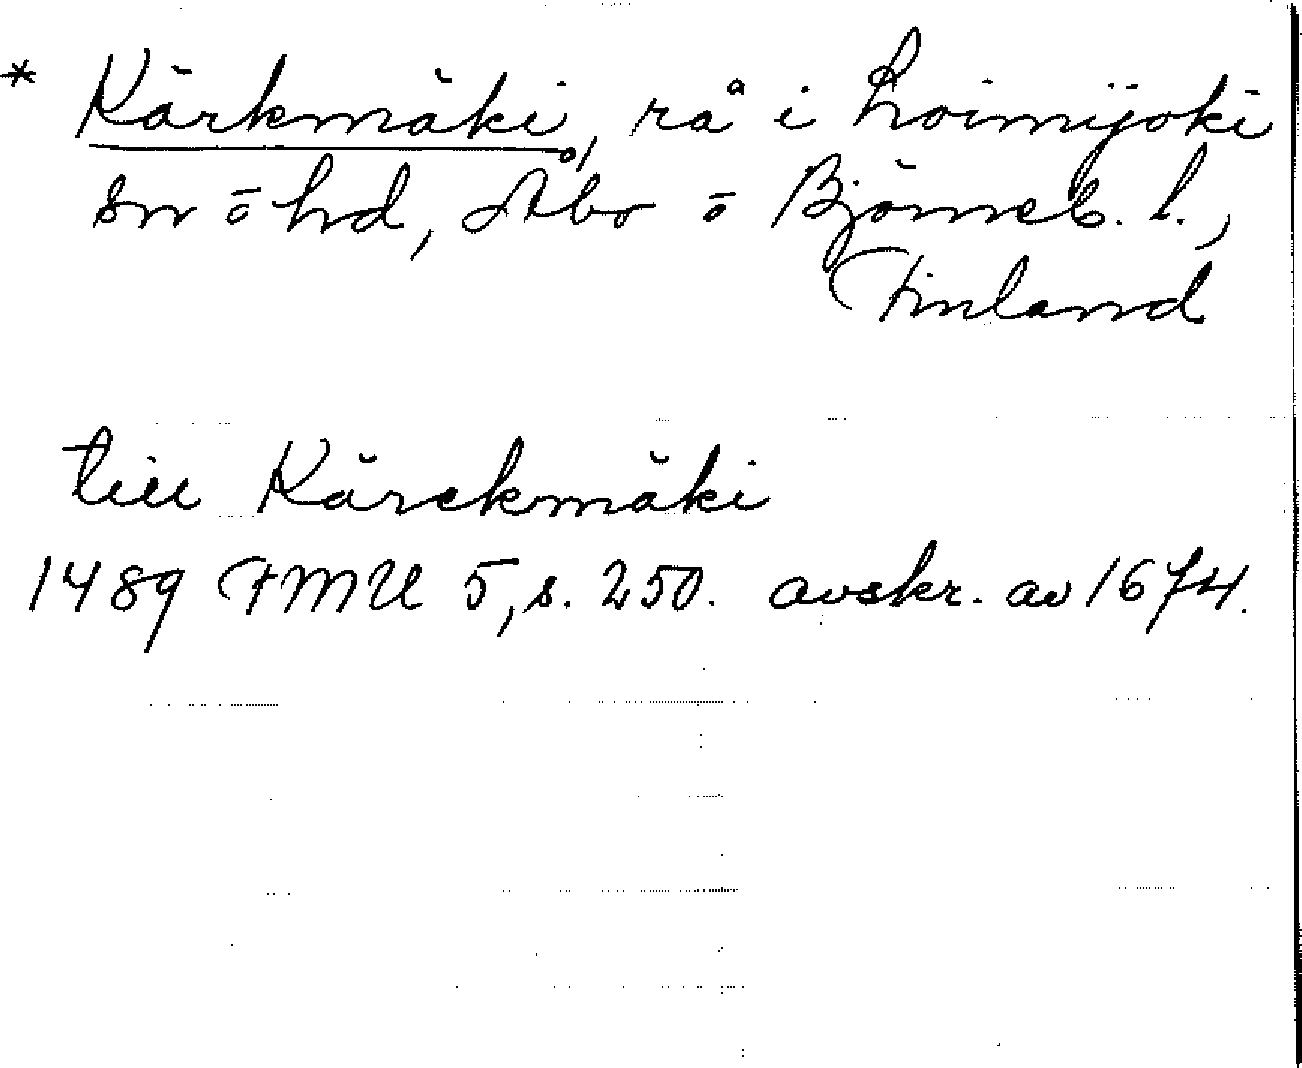 * Kärkmäki, rå i Loimijoki
sn o hd, Åbo o Björneb. l.,
Finland
till Kärckmäki
1489 FMU 5, s. 250. avskr. av 1674.